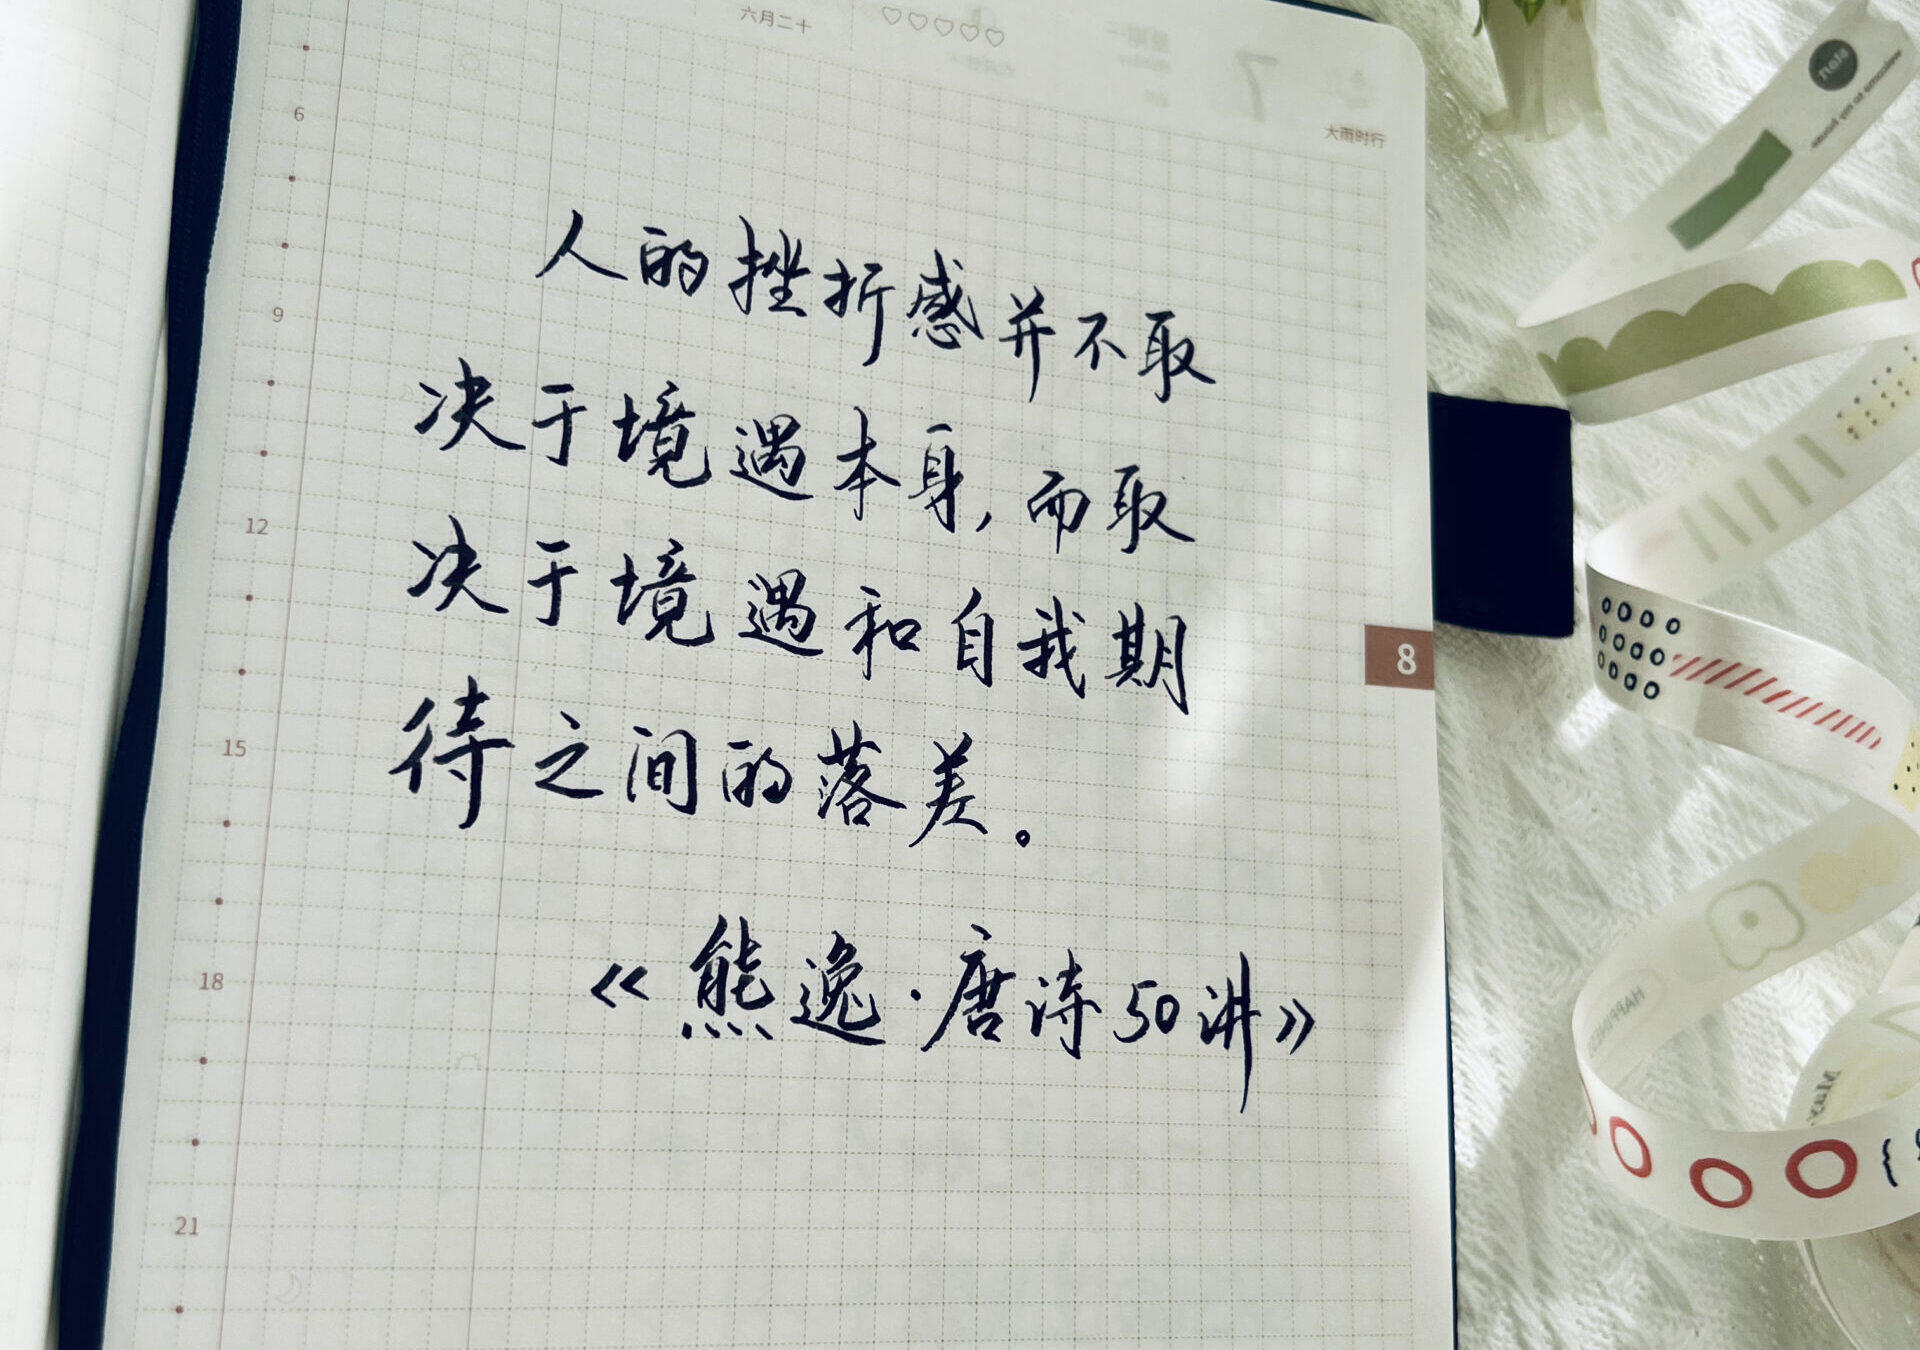 六月二十
大雨时行
6
人的挫折感并不取
9
决于境遇本身,而取
12
决于境遇和自我期
8
待之间的落差。
15
《熊逸·唐诗50讲》
18
21